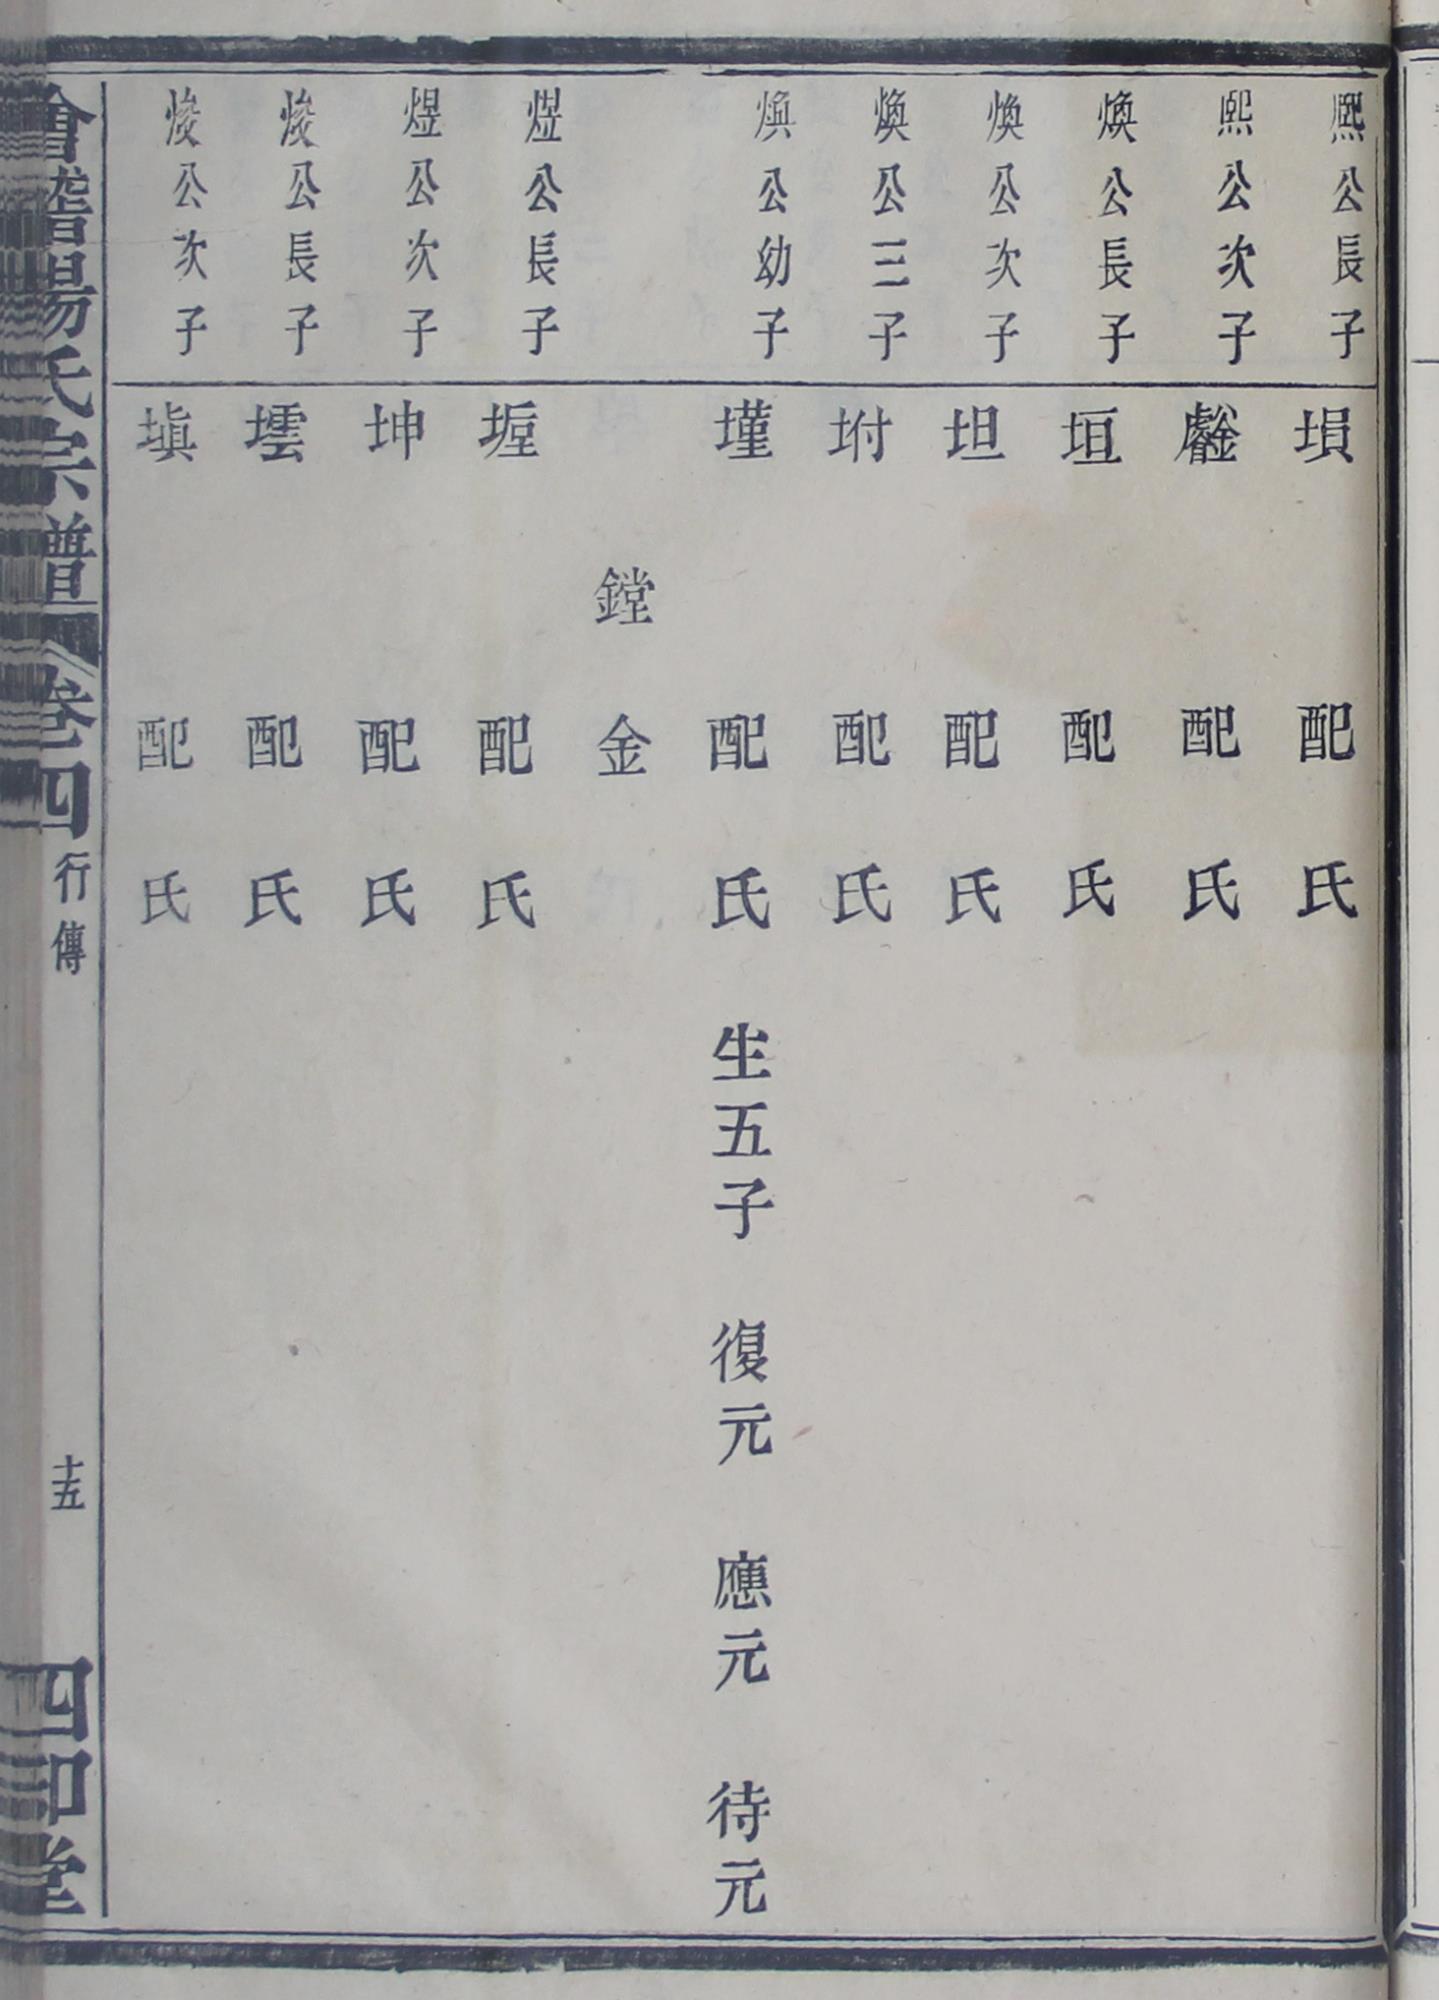 熙公長子 塤 配 氏
熙公次子 配 氏
煥公長子 垣 配 氏
煥公次子 坦 配 氏
煥公三子 坿 配 氏
煥公幼子 墐 配 氏 生五子 復元 應元 待元
鏜 金
煜公長子 配 氏
煜公次子 坤 配 氏
焌公長子 配 氏
焌公次子 塡 配 氏
會稽楊氏宗譜 卷四 行傳 十五 四知堂